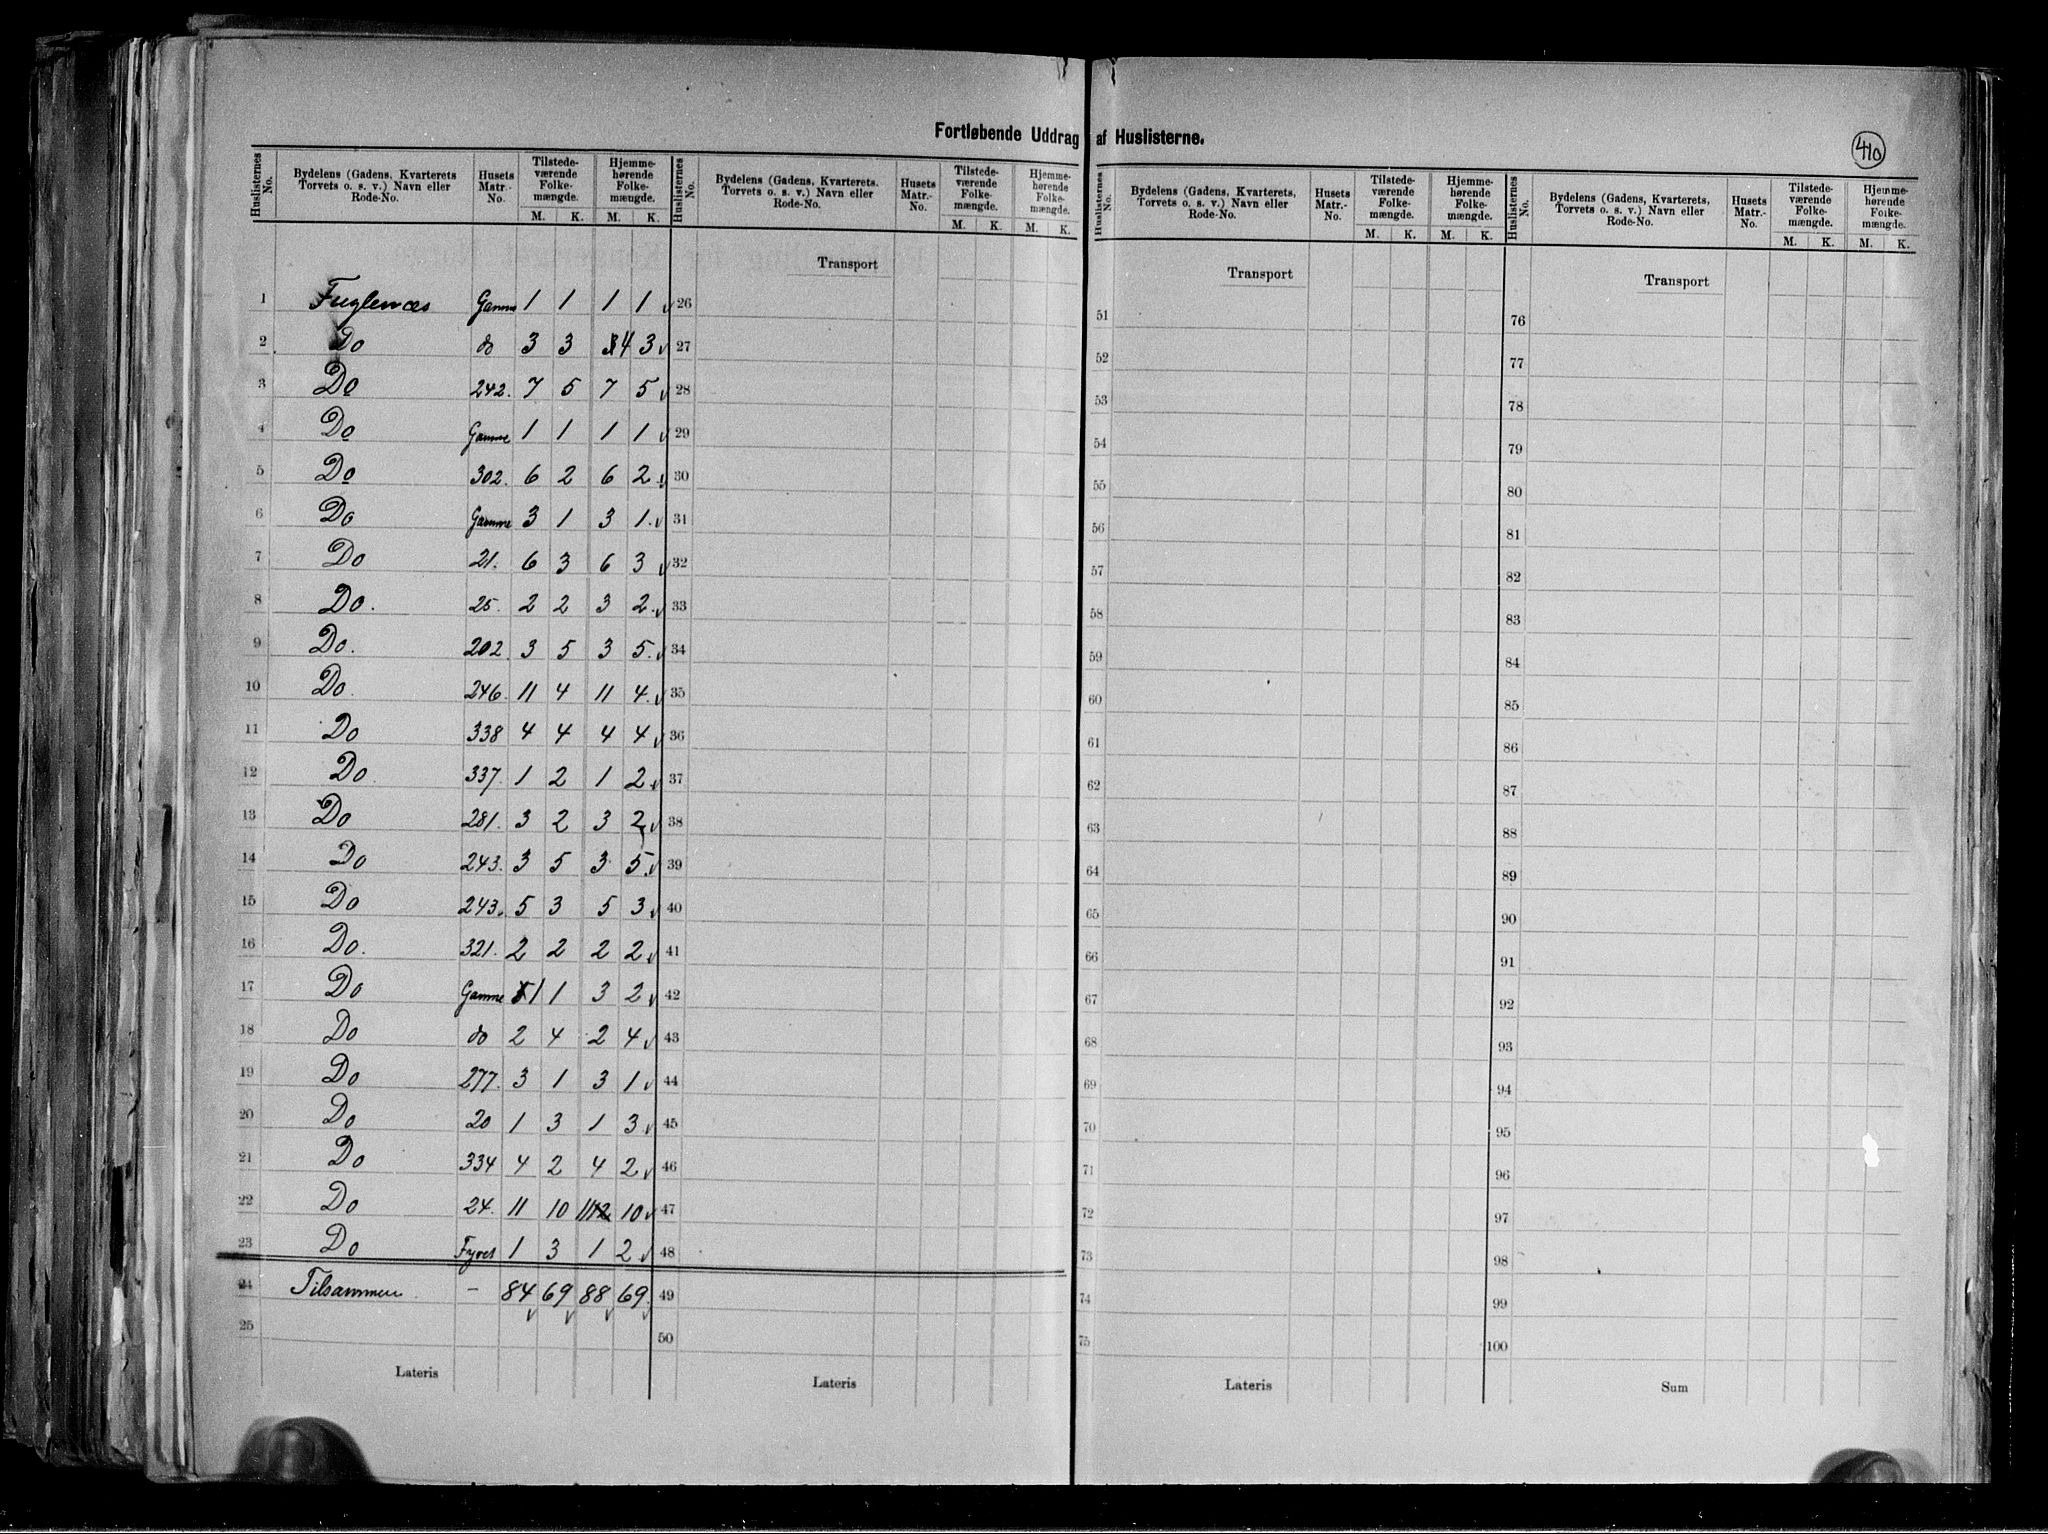 410
Fortløbende Uddrag af Huslisterne.
Huslisternes No. Bydelens (Gadens, Kvarterets Torvets o. s. v.) Navn eller Rode-No. Husets Matr.-No. Tilstedeværende Folkemængde. M. K. Hjemmehørende Folkemængde. M. K.
Huslisternes No. Bydelens (Gadens, Kvarterets, Torvets o. s. v.) Navn eller Rode-No. Husets Matr.-No. Tilstedeværende Folkemængde. M. K. Hjemmehørende Folkemængde. M. K.
Huslisternes No. Bydelens (Gadens, Kvarterets, Torvets o. s. v.) Navn eller Rode-No. Husets Matr.-No. Tilstedeværende Folkemængde. M. K. Hjemmehørende Folkemængde. M. K.
Huslisternes No. Bydelens (Gadens, Kvarterets, Torvets o. s. v.) Navn eller Rode-No. Husets Matr.-No. Tilstedeværende Folkemængde. M. K. Hjemmehørende Folkemængde. M. K.
Transport Transport Transport
1 Fuglenæs Gamme 1 1 1 1 26 51 76
2 Do do 3 3 4 3 27 52 77
3 Do 242. 7 5 7 5 28 53 78
4 Do Gamme 1 1 1 1 29 54 79
5 Do 302. 6 2 6 2 30 55 80
6 Do Gamme 3 1 3 1. 31 56 81
7 Do 21. 6 3 6 3 32 57 82
8 Do. 25. 2 2 3 2. 33 58 83
9 Do. 202. 3 5 3 5. 34 59 84
10 Do. 246. 11 4 11 4. 35 60 85
11 Do 338 4 4 4 4 36 61 86
12 Do. 337. 1 2 1 2 37 62 87
13 Do 281. 3 2 3 2 38 63 88
14 Do 243. 3 5 3 5. 39 64 89
15 Do 243. 5 3 5 3 40 65 90
16 Do. 321. 2 2 2 2 41 66 91
17 Do Gamme 1 1 3 2 42 67 92
18 Do do 2 4 2 4 43 68 93
19 Do 277. 3 1 3 1 44 69 94
20 Do 20 1 3 1 3 45 70 95
21 Do 334 4 2 4 2 46 71 96
22 Do 24. 11 10 11 12 10 47 72 97
23 Do Fyret 1 3 1 2 48 73 98
24 Tilsammen. - 84 69 88 69. 49 74 99
25 50 75 100
Lateris Lateris Lateris Sum